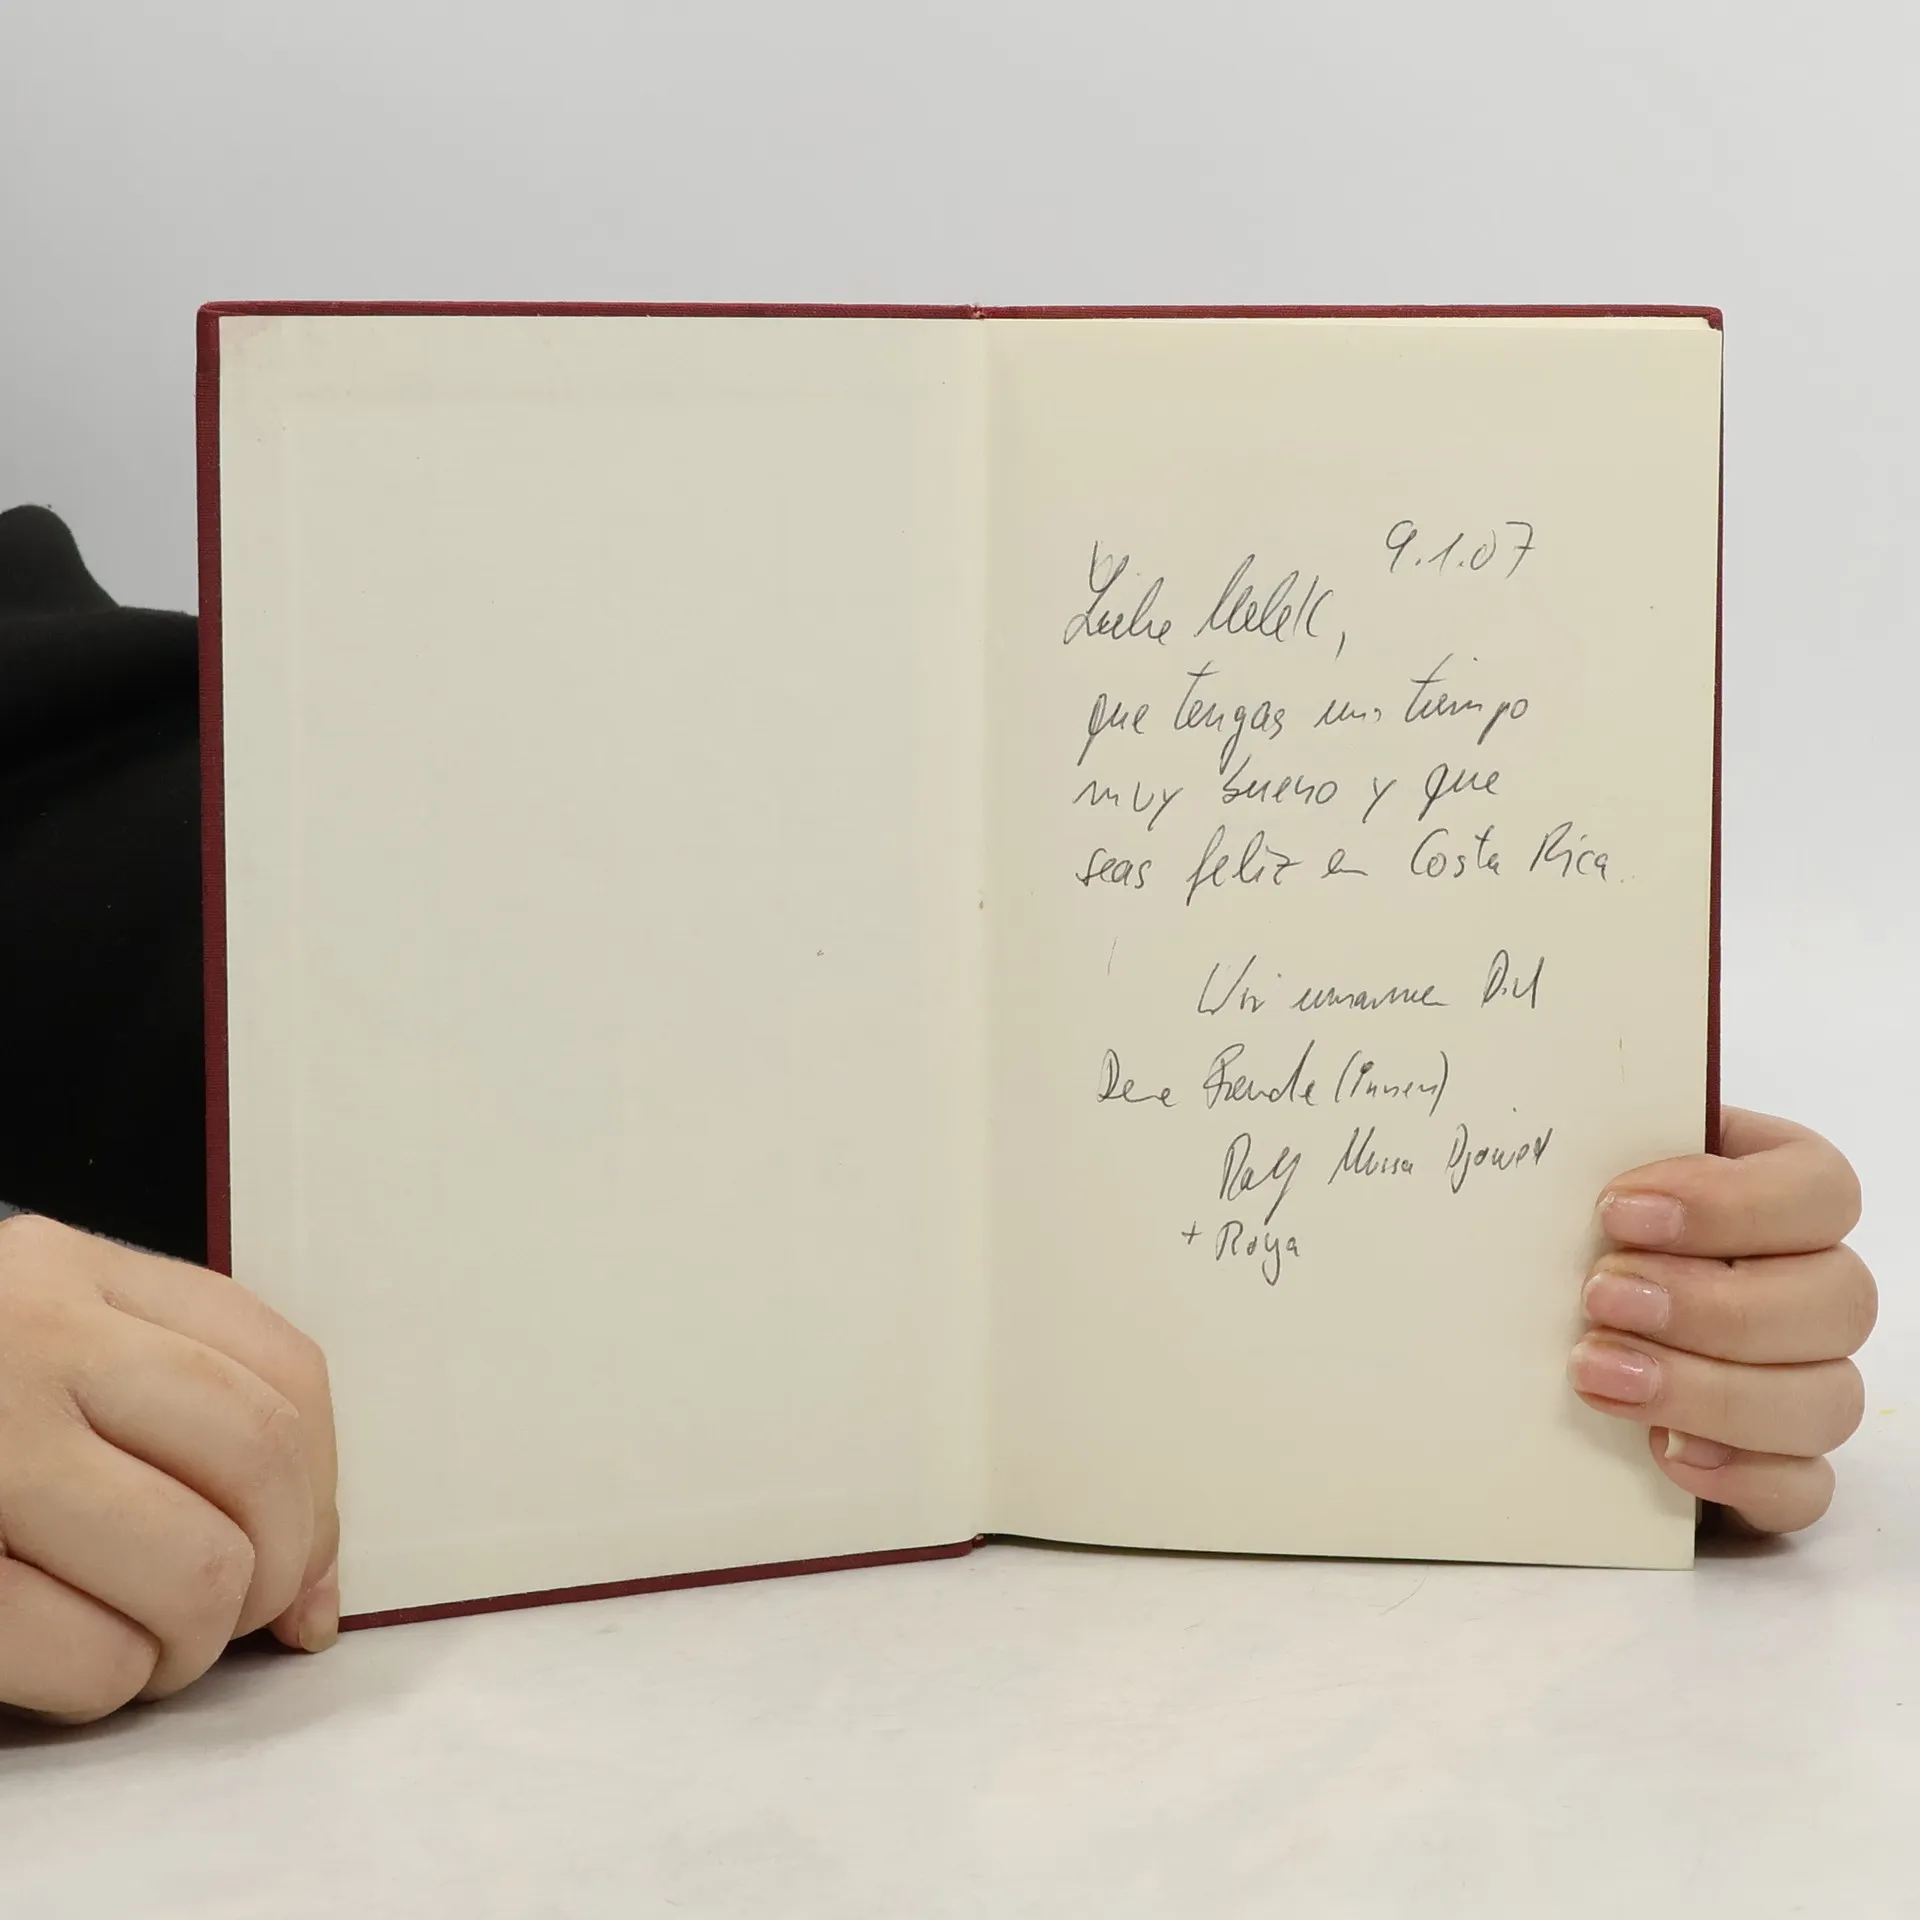 9.1.07
Liebe Melek,
que tengas un tiempo
muy bueno y que
seas feliz en Costa Rica.
Wir umarmen Dich
Deine Freunde (innen)
Ralf Mussa Djawed
+ Roya